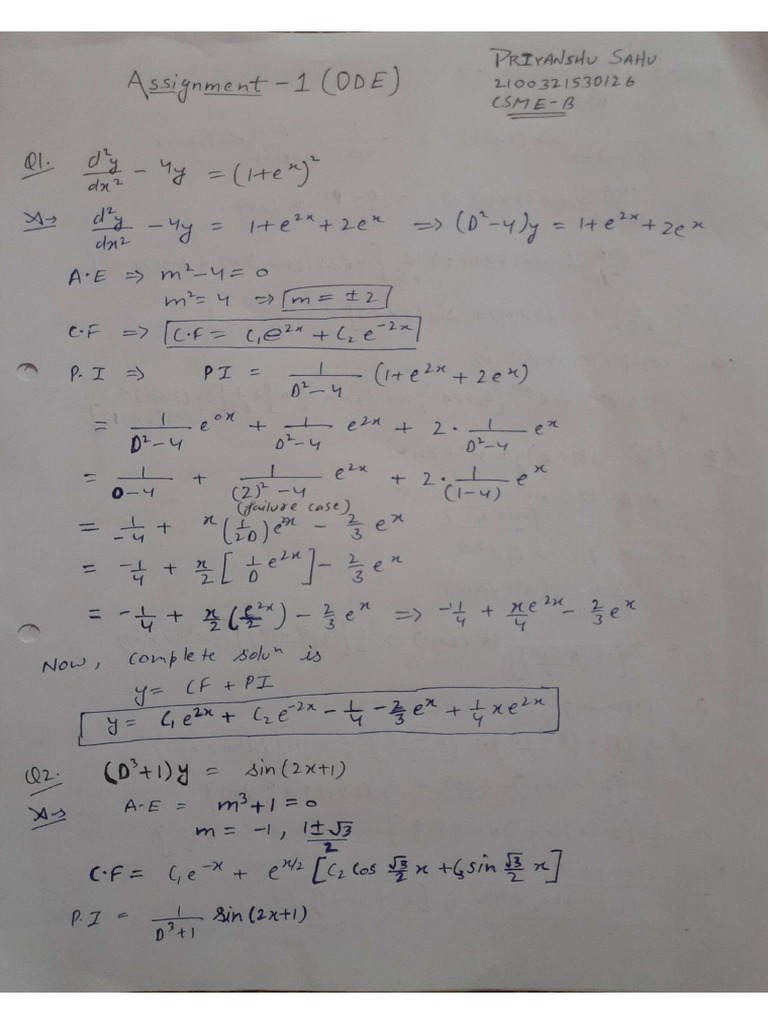 Assignment - 1 (ODE)
PRIYANSHU SAHU
2100321530126
CSME-B
Q1. d²y/dx² - 4y = (1+eˣ)²
A→ d²y/dx² - 4y = 1+e²ˣ+2eˣ ⇒ (D²-4)y = 1+e²ˣ+2eˣ
A.E ⇒ m²-4=0
m²=4 ⇒ m = ±2
C.F ⇒ C.F = C₁e²ˣ + C₂e⁻²ˣ
P.I ⇒ PI = 1/(D²-4) (1+e²ˣ+2eˣ)
= 1/(D²-4) e⁰ˣ + 1/(D²-4) e²ˣ + 2·1/(D²-4) eˣ
= 1/(0-4) + 1/((2)²-4) e²ˣ + 2·1/(1-4) eˣ
(failure case)
= 1/-4 + x(1/2D)e²ˣ - 2/3 eˣ
= -1/4 + x/2 [1/D e²ˣ] - 2/3 eˣ
= -1/4 + x/2 (e²ˣ/2) - 2/3 eˣ ⇒ -1/4 + xe²ˣ/4 - 2/3 eˣ
Now, complete soluⁿ is
y = CF + PI
y = C₁e²ˣ + C₂e⁻²ˣ - 1/4 - 2/3 eˣ + 1/4 xe²ˣ
Q2. (D³+1)y = sin(2x+1)
A→ A-E = m³+1=0
m = -1, (1±√3)/2
C.F = C₁e⁻ˣ + e^(x/2) [C₂ cos √3/2 x + C₃ sin √3/2 x]
P.I = 1/(D³+1) sin(2x+1)